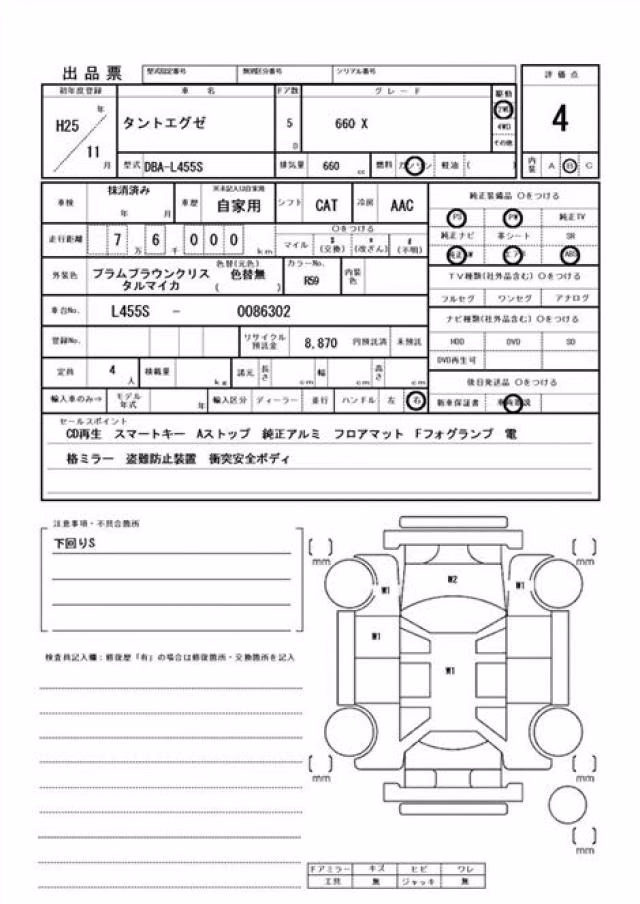 出品票 型式指定番号 類別区分番号 シリアル番号
評価点
初年度登録 車名 ドア数 グレード 駆動
H25 年 タントエグゼ 5 D 660 X 2WD 4WD その他
4
11 月 型式 DBA-L455S 排気量 660 cc 燃料 ガソリン 軽油 ( ) 内装 A B C
車検 抹消済み 年 月 車歴 ※未記入は自家用 自家用 シフト CAT 冷房 AAC
純正装備品 ○をつける
PS PW 純正TV
走行距離 7万 6千 0 0 0 km ○をつける
マイル $ (交換) * (改ざん) # (不明)
純正ナビ 革シート SR
純正AW エアB ABS
外装色 プラムブラウンクリスタルマイカ 色替(元色) ( 色替無 ) カラーNo. R59 内装色
TV種類(社外品含む) ○をつける
フルセグ ワンセグ アナログ
車台No. L455S - 0086302
ナビ種類(社外品含む) ○をつける
登録No. リサイクル預託金 8,870 円預託済 未預託
HDD DVD SD
DVD再生可
定員 4 人 積載量 kg 諸元 長さ cm 幅 cm 高さ cm
後日発送品 ○をつける
輸入車のみ⇒ モデル年式 年 輸入区分 ディーラー 並行 ハンドル 左 右
新車保証書
セールスポイント
CD再生 スマートキー Aストップ 純正アルミ フロアマット Fフォグランプ 電
格ミラー 盗難防止装置 衝突安全ボディ
注意事項・不具合箇所
下回りS
検査員記入欄：修復歴「有」の場合は修復箇所・交換箇所を記入
[ ] mm
[ ] mm
W1
W2
W1
W1
W1
[ ] mm
[ ] mm
[ ] mm
ドアミラー キズ ヒビ ワレ
工具 無 ジャッキ 無